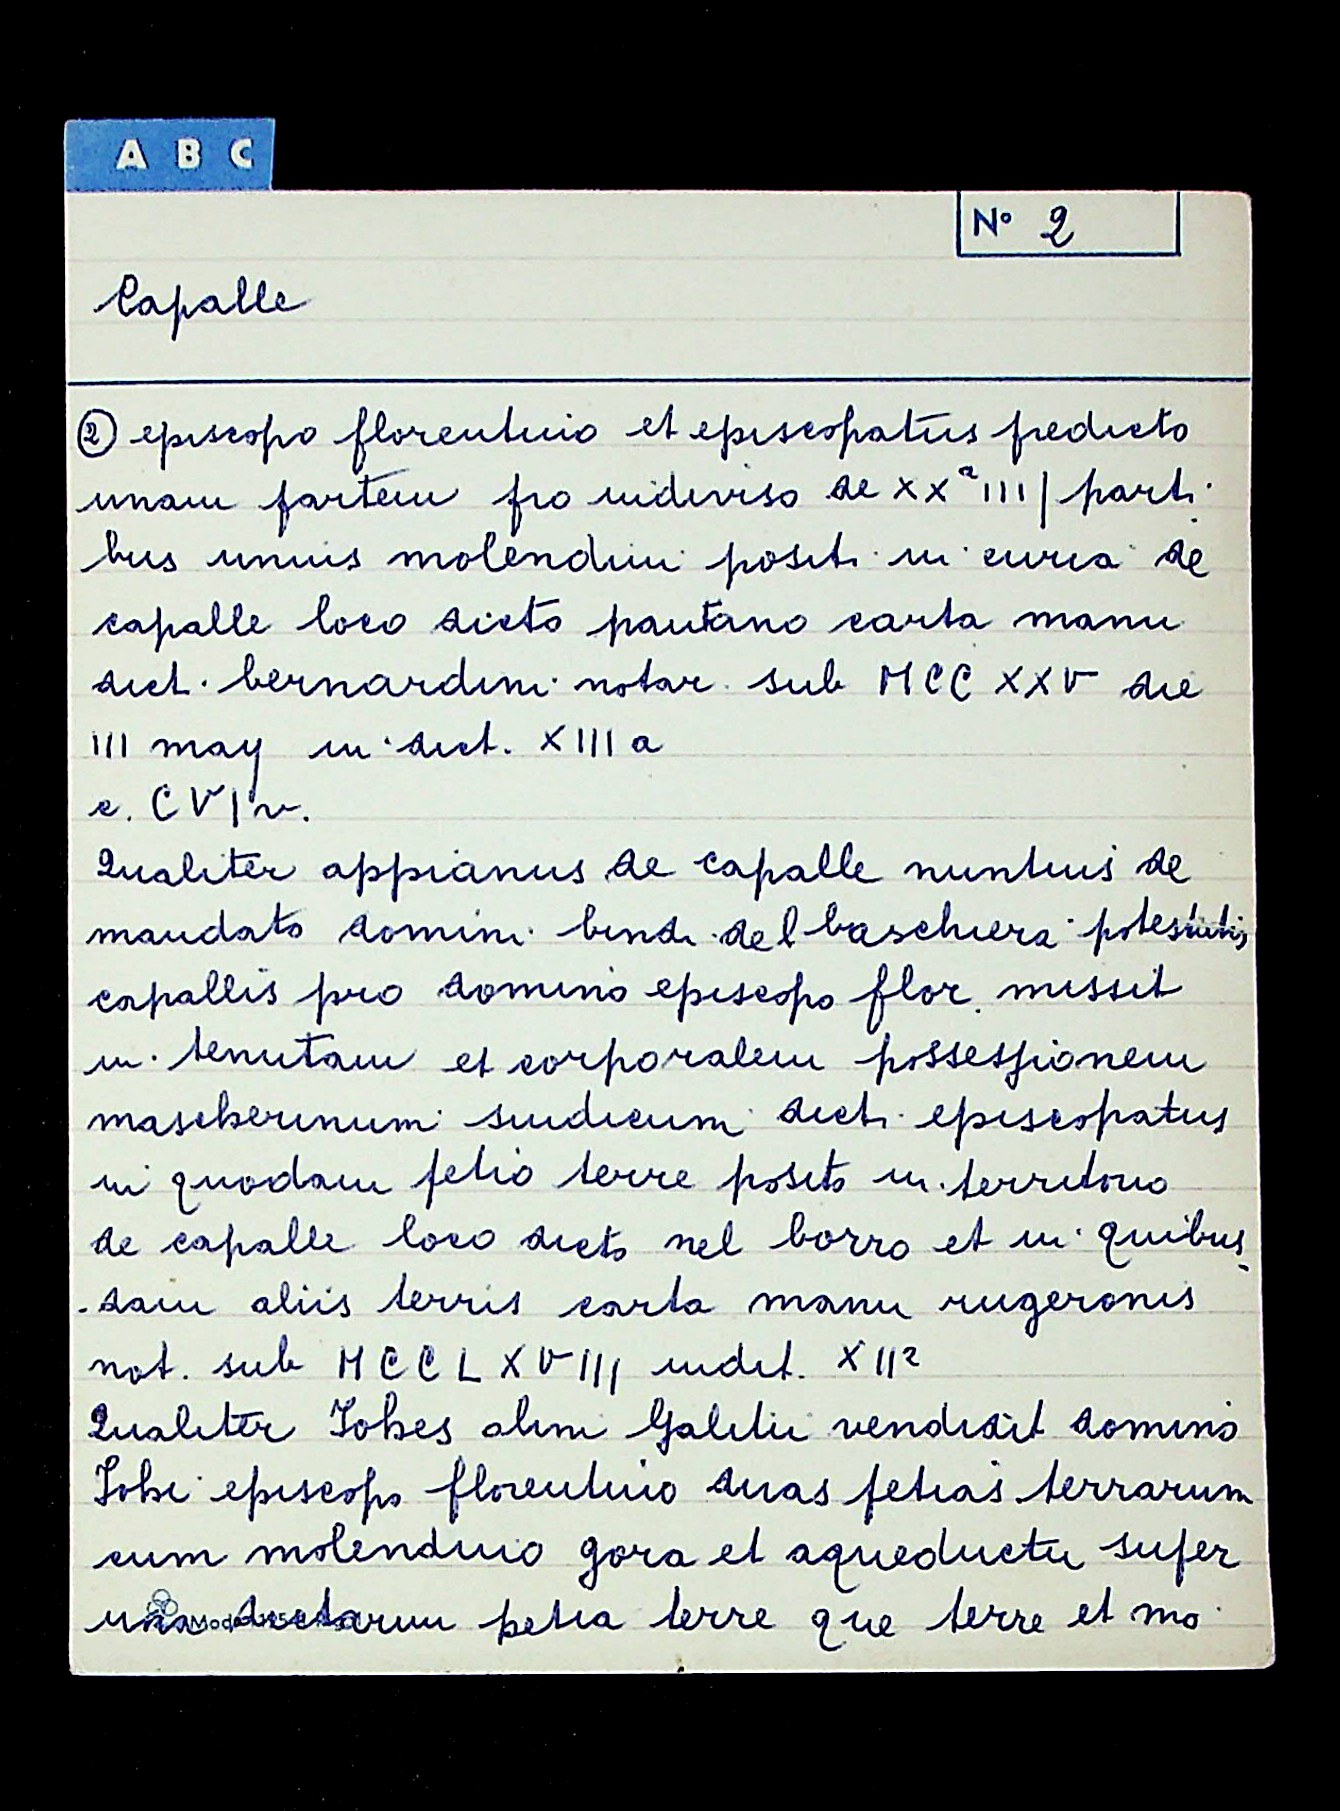 A B C
N° 2
Capalle
② episcopo florentino et episcopatus predicto
unam partem pro indiviso de XXªIIII parti
bus unius molendini positi in curia de
capalle loco dicto pantano carta manu
dict. bernardini notar. sub MCCXXV die
III may in dict. XIIIa
c. CVI v.
Qualiter appianus de capalle nuntius de
mandato domini bindi del baschiera potestatis
capallis pro domino episcopo flor. missit
in tenutam et corporalem possessionem
mascherinum sindicum dicti episcopatus
in quodam petio terre posito in territorio
de capalle loco dicto nel borro et in quibus
-dam aliis terris carta manu rugeronis
not. sub MCCLXVIII indit. XIIª
Qualiter Johes olim Galitii vendidit domino
Johi episcopo florentino duas petias terrarum
cum molendino gora et aqueductu super
una dictarum petia terre que terre et mo